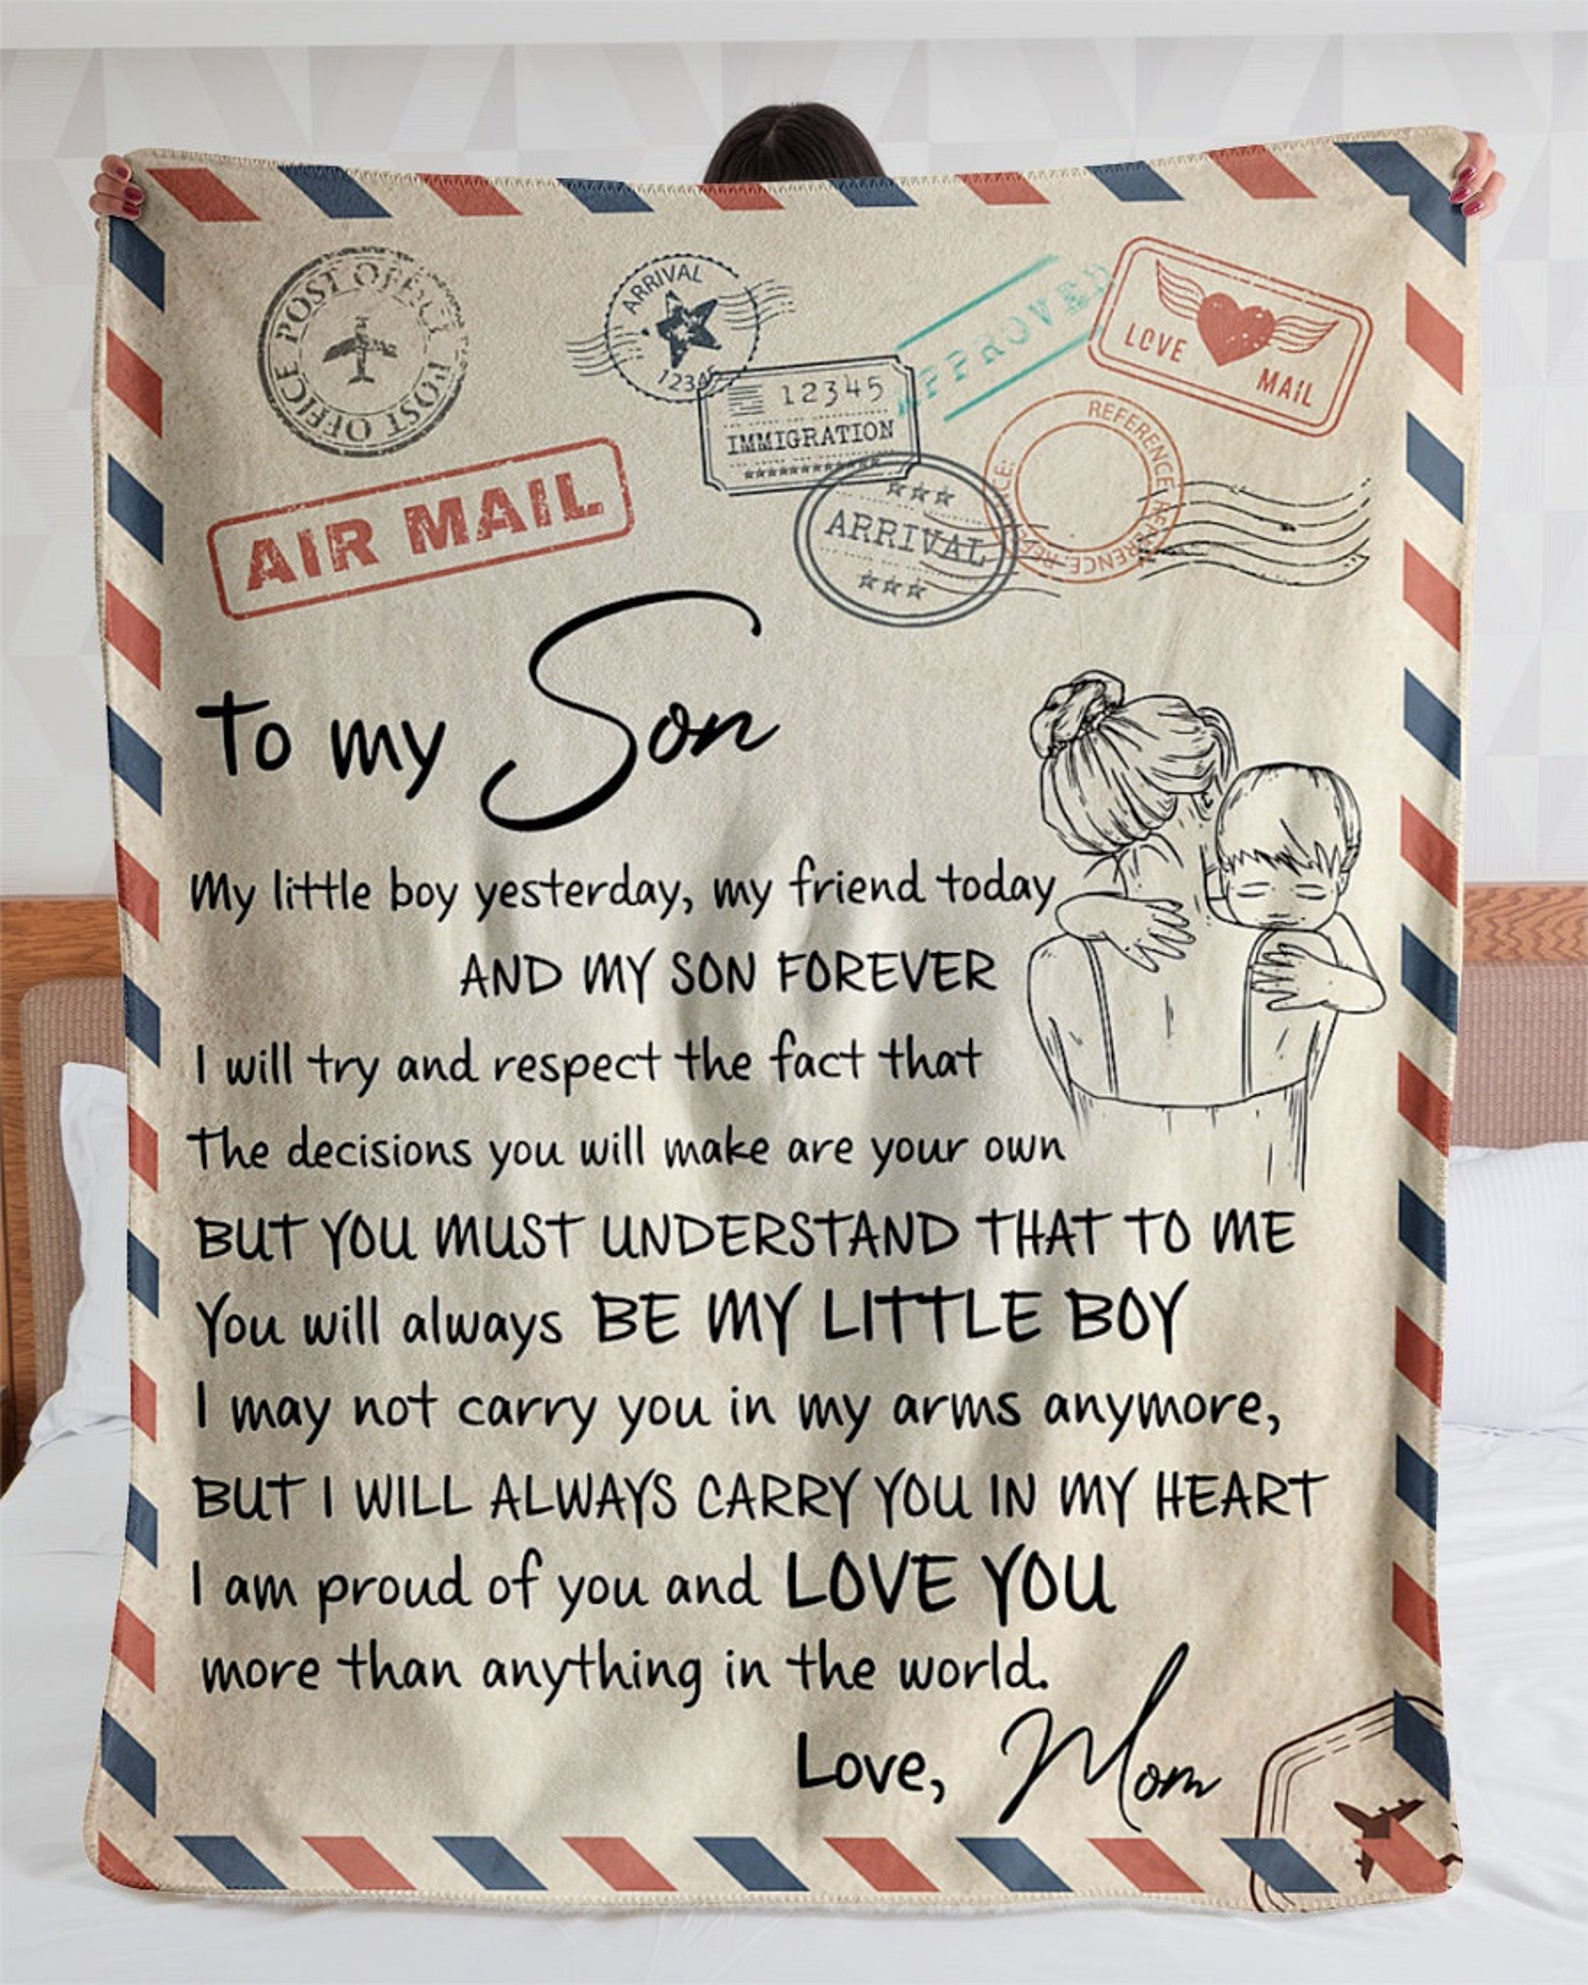 POST OFFICE POST OFFICE
ARRIVAL
12345
12345
IMMIGRATION
APPROVED
LOVE
MAIL
REFERENCE REFERENCE
AIR MAIL
ARRIVAL
To my Son
My little boy yesterday, my friend today
AND MY SON FOREVER
I will try and respect the fact that
The decisions you will make are your own
BUT YOU MUST UNDERSTAND THAT TO ME
You will always BE MY LITTLE BOY
I may not carry you in my arms anymore,
BUT I WILL ALWAYS CARRY YOU IN MY HEART
I am proud of you and LOVE YOU
more than anything in the world.
Love, Mom